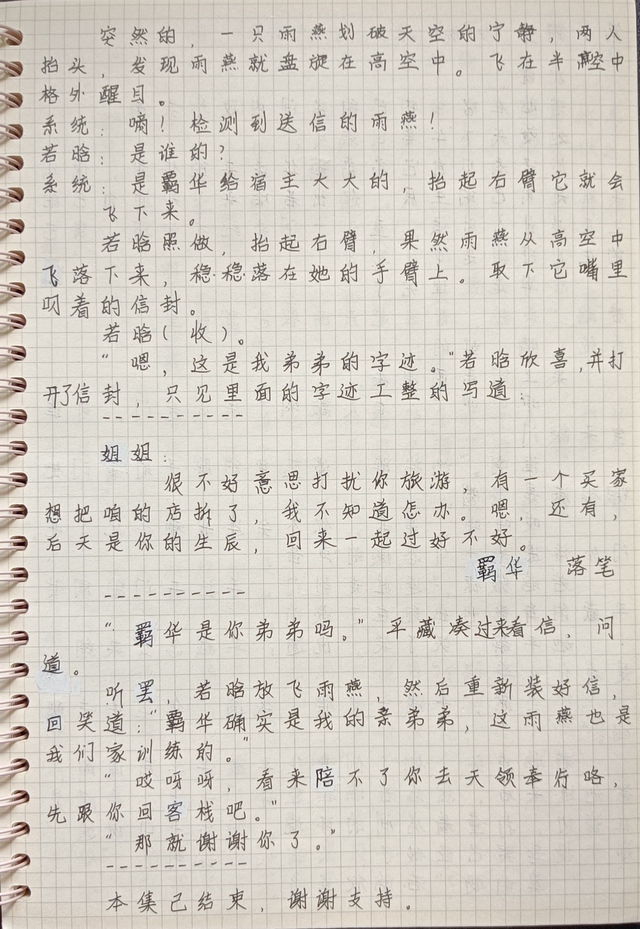 突然的，一只雨燕划破天空的宁静，两人
抬头，发现雨燕就盘旋在高空中。飞在半高空中
格外醒目。
系统：嘀！检测到送信的雨燕！
若晗：是谁的？
系统：是羁华给宿主大大的，抬起右臂它就会
飞下来。
若晗照做，抬起右臂，果然雨燕从高空中
飞落下来，稳稳落在她的手臂上。取下它嘴里
叼着的信封。
若晗（收）。
“嗯，这是我弟弟的字迹。”若晗欣喜，并打
开了信封，只见里面的字迹工整的写道：
----------
姐姐：
很不好意思打扰你旅游，有一个买家
想把咱的店拆了，我不知道怎办。嗯，还有，
后天是你的生辰，回来一起过好不好。
羁华 落笔
----------
“羁华是你弟弟吗。”平藏凑过来看信，问
道。
听罢，若晗放飞雨燕，然后重新装好信，
回笑道：“羁华确实是我的亲弟弟，这雨燕也是
我们家训练的。”
“哎呀呀，看来陪不了你去天领奉行咯，
先跟你回客栈吧。”
“那就谢谢你了。”
----------
本集已结束，谢谢支持。